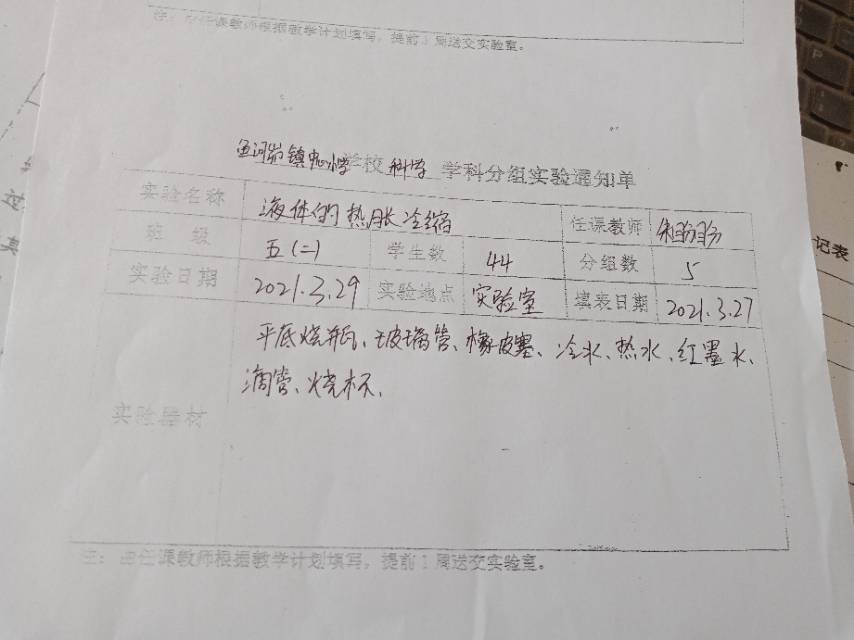 注：由任课教师根据教学计划填写，提前1周送交实验室。
镇中心小学学校 科学 学科分组实验通知单
实验名称 液体的热胀冷缩 任课教师
班 级 五(二) 学生数 44 分组数 5
实验日期 2021.3.29 实验地点 实验室 填表日期 2021.3.27
实验器材 平底烧瓶、玻璃管、橡皮塞、冷水、热水、红墨水、
滴管、烧杯、
注：由任课教师根据教学计划填写，提前1周送交实验室。
记表